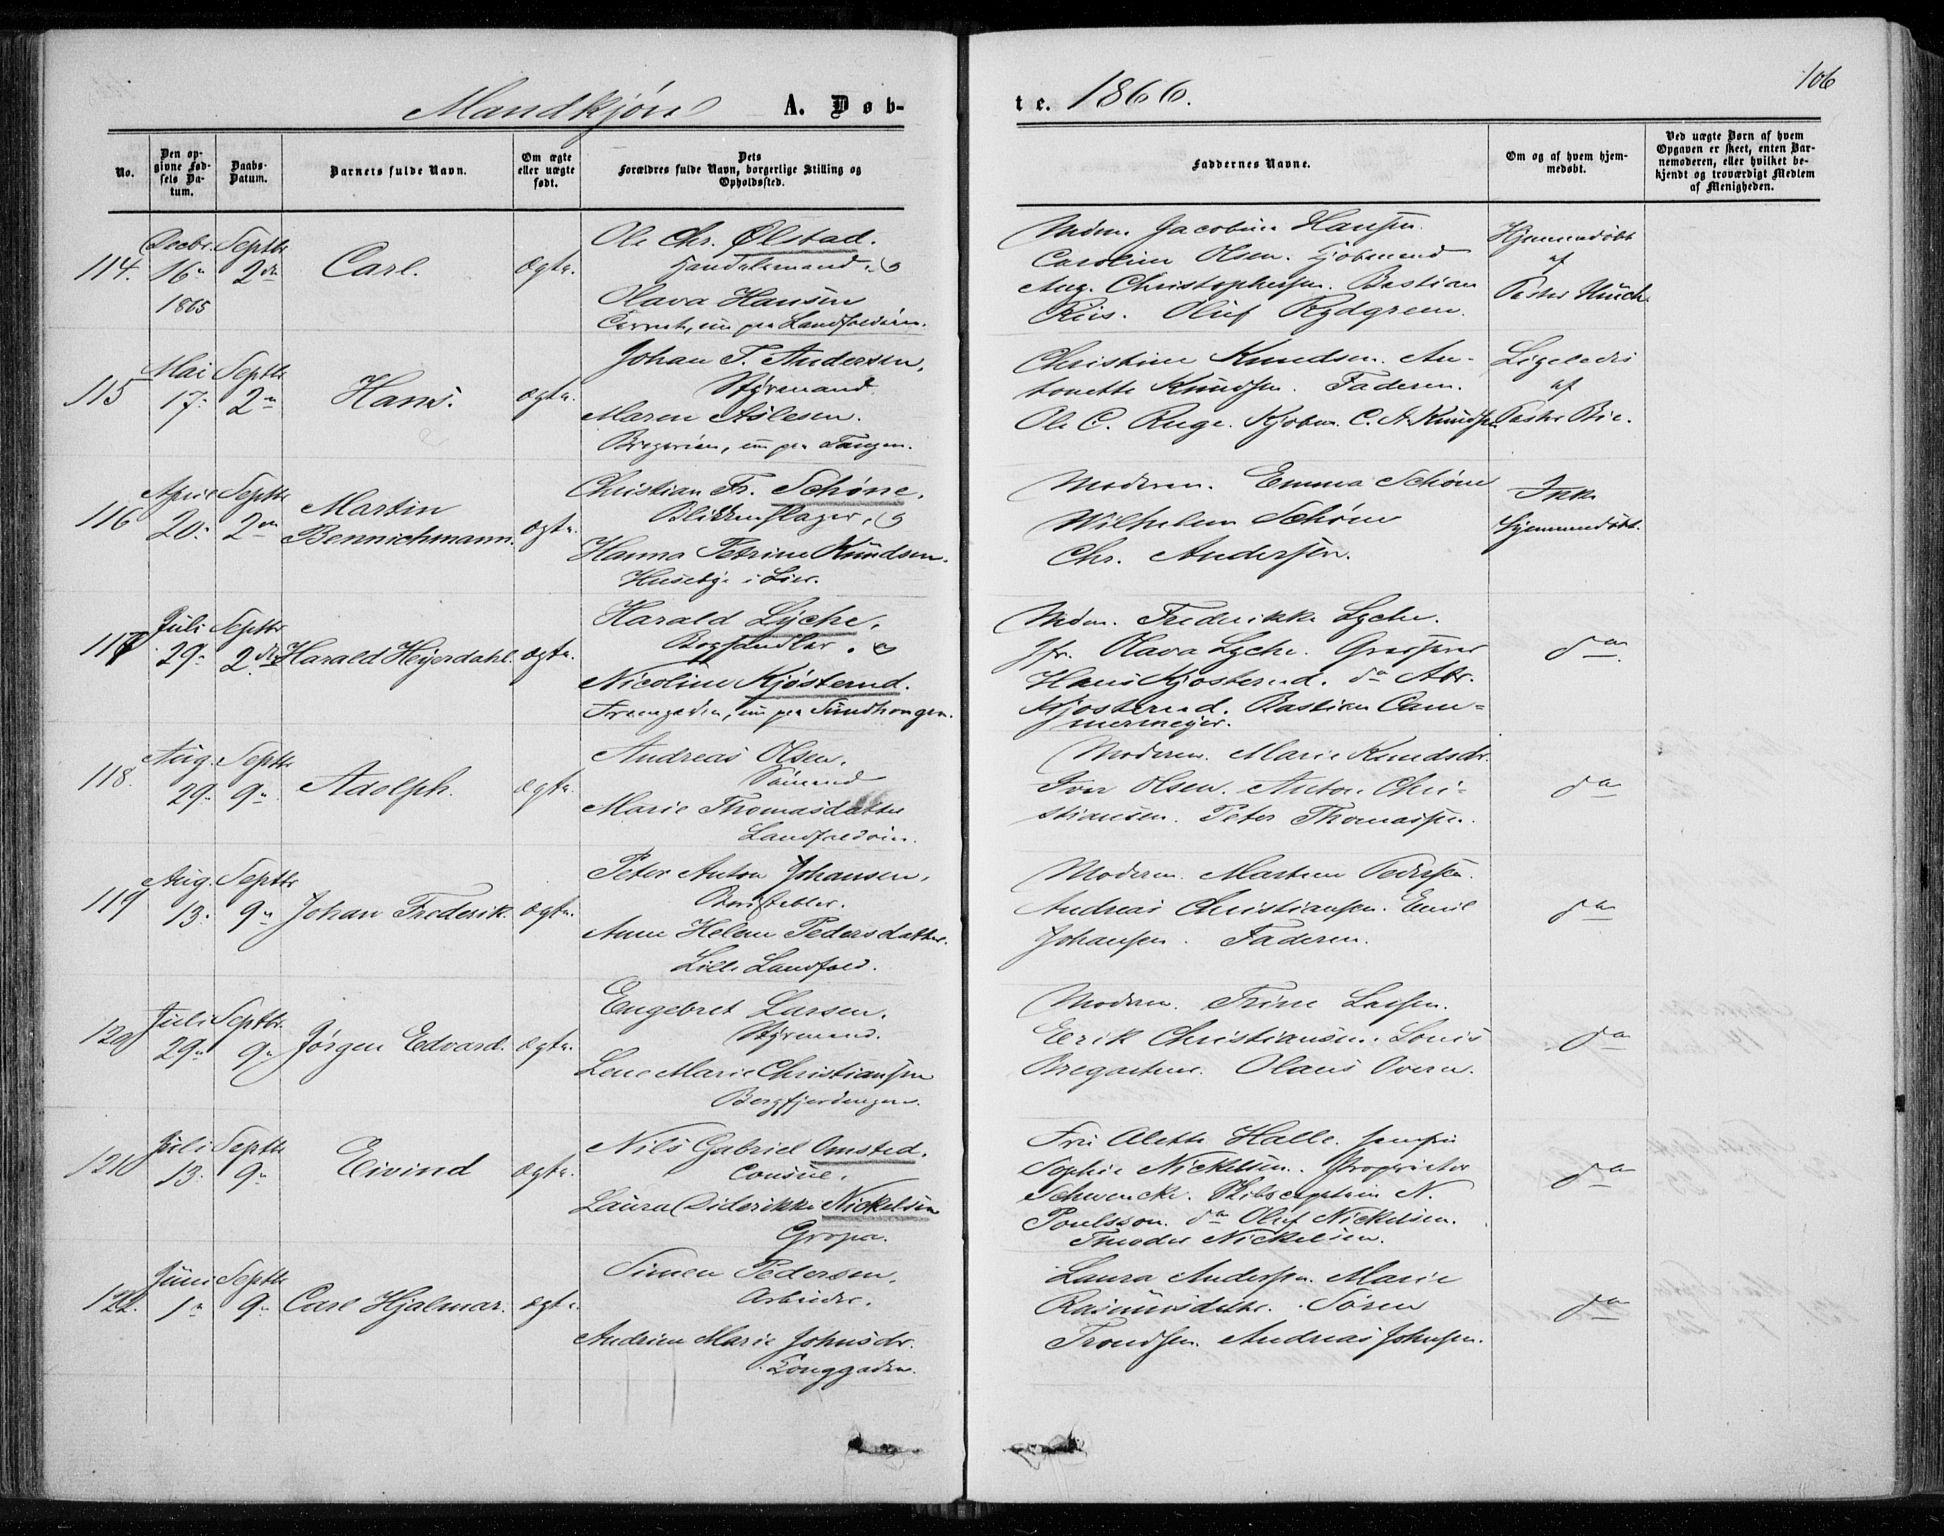 Mandkjøn A. Døb-
te. 1866.
106
No.
Den op-
givne Fød-
sels Da-
tum.
Daabs-
Datum.
Barnets fulde Navn.
Om ægte
eller uægte
født.
Dets
Forældres fulde Navn, borgerlige Stilling og
Opholdssted.
Faddernes Navne.
Om og af hvem hjem-
medøbt.
Ved uægte Børn af hvem
Opgaven er skeet, enten Bar-
nemoderen, eller hvilket be-
kjendt og troværdigt Medlem
af Menigheden.
114.
Decbr.
16n
1865
Septbr
2den
Carl.
ægte.
Ole Chr. Ølstad.
Handelsmand.
Olava Hansen
nu paa Landfaldøen.
Mdm. Jacobine Hansen.
Caroline Olsen. Kjøbmænd
Aug. Christophersen. Bastian
Riis. Oluf Rydgreen.
Hjemmedøbt
af
Pastor Munch.
115
Mai
17.
Septbr
2n
Hans.
ægte.
Johan F. Andersen.
Styrmand
Maren Aslesen.
nu paa Tangen.
Christine Knudsen. An-
tonette Knudsen. Faderen.
Ole C. Ruge. Kjøbm. C. A. Knudsen
Ligeledes
af
Pastor Bøe.
116
April
20.
Septbr
2en
Martin
Bennichmann.
ægte.
Christian Fr. Schøne.
Blikkenslager.
Hanna Petrine Knudsen.
Husebye i Lier.
Moderen. Emma Schøne
Wilhelm Schøne
Chr. Andersen.
Ikke
hjemmedøbt.
117.
Juli
29n
Septbr
2den
Harald Heyerdahl.
ægte.
Harald Lyche.
Boghandler.
Nicoline Kjøsterud.
nu paa Sundhaugen.
Mdm. Frederikke Lyche.
Jfr. Olava Lyche. Grosserer
Hans Kjøsterud. do Atr.
Kjøsterud. Bastian Cam-
mermeyer.
do.
118.
Aug.
29.
Septbr
9n
Adolph.
ægte.
Andreas Olsen.
Sømand
Marie Thomasdatter
Landfaldøen.
Moderen. Marie Knudsdr.
Iver Olsen. Anton Chri-
stiansen. Peter Thomassen.
do
119
Aug.
13.
Septbr
9n
Johan Frederik.
ægte.
Peter Anton Johansen.
Anne Helene Pedersdatter.
Lille Landfald.
Moderen. Martine Pedersen.
Andreas Christiansen. Emil
Johansen. Faderen.
do
120
Juli
29n
Septbr.
9n
Jørgen Edvard.
ægte.
Engebret Larsen.
Styrmand.
Lene Marie Christiansen
Bergfjerdingen.
Moderen. Trine Larsen.
Eerik Christiansen. Louis
Bregartner. Olaus Overn.
do
121
Juli
13.
Septbr
9n
Eivind
ægte.
Nils Gabriel Omsted.
Consul.
Laura Diderikke Nickelsen
Gropa.
Fru Alette Halle. Jomfru
Sophie Nickelsen. Proprietær
Schwencke. Skibscaptein N.
Poulsson. do Oluf Nickelsen.
Theodor Nickelsen.
do
122.
Juni
1n
Septbr
9n
Carl Hjalmar.
ægte.
Simen Pedersen.
Arbeider.
Andrine Marie Johnsdr.
Tonggaden.
Laura Andersen. Marie
Rasmusdatter. Søren
Trondsen. Andreas Johnsen.
do